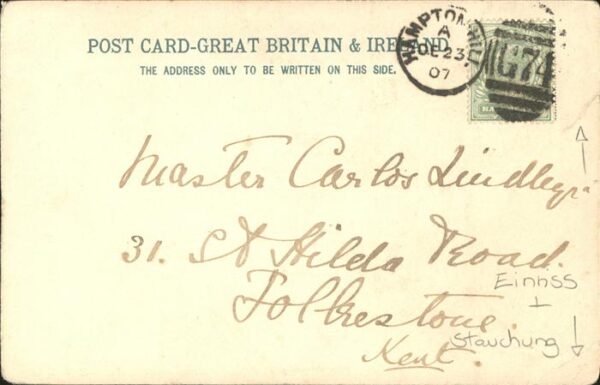 POST CARD-GREAT BRITAIN & IRELAND.
THE ADDRESS ONLY TO BE WRITTEN ON THIS SIDE.
HAMPTON HILL
A
DE 23
07
G74
Master Carlos Lindley
31. St Hilda Road.
Folkestone.
Kent.
Einriss
+
Stauchung